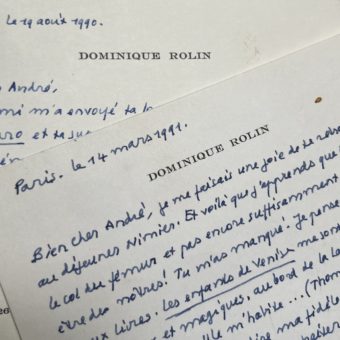 le 19 août 1990.
DOMINIQUE ROLIN
André,
m'a envoyé ta
et ta
Paris. le 14 mars 1991.
DOMINIQUE ROLIN
Bien cher André, je me faisais une joie de te
au déjeuner Nimier. Et voilà que j'apprends que
le col du fémur et pas encore suffisamment
être des nôtres! Tu m'as manqué! Je pense
livres. Les enfants de Venise me sont
et magiques, au bord de la
m'habite...(Thom
ma fidèle
26